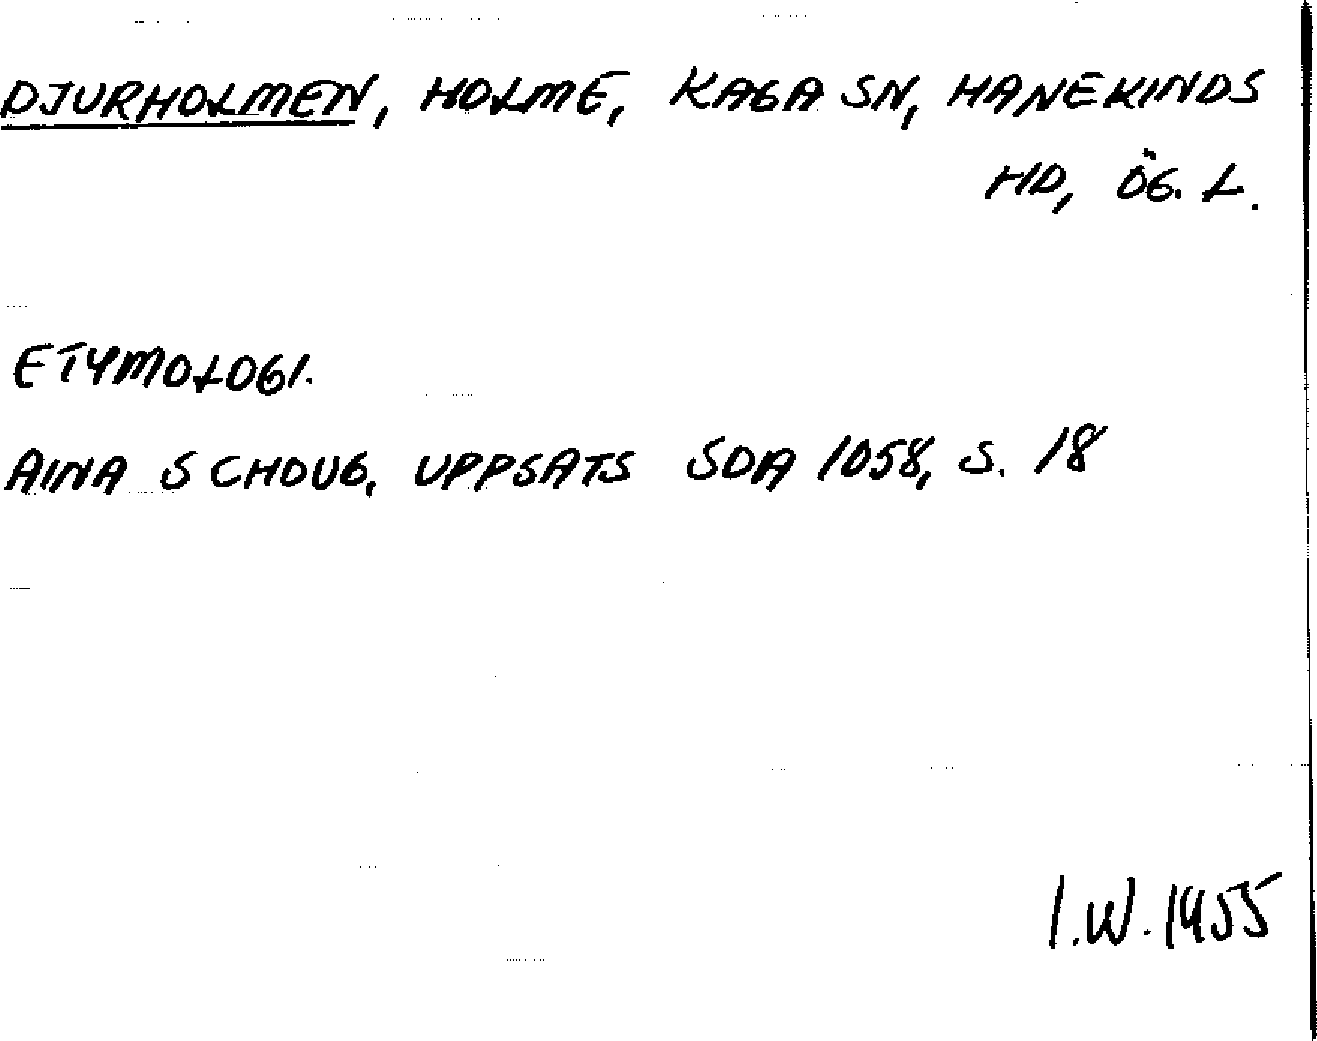 DJURHOLMEN, HOLME, KAGA SN, HANEKINDS
HD, ÖG. L.
ETYMOLOGI.
AINA SCHOUG, UPPSATS SOA 1058, S. 18
I.W. 1955